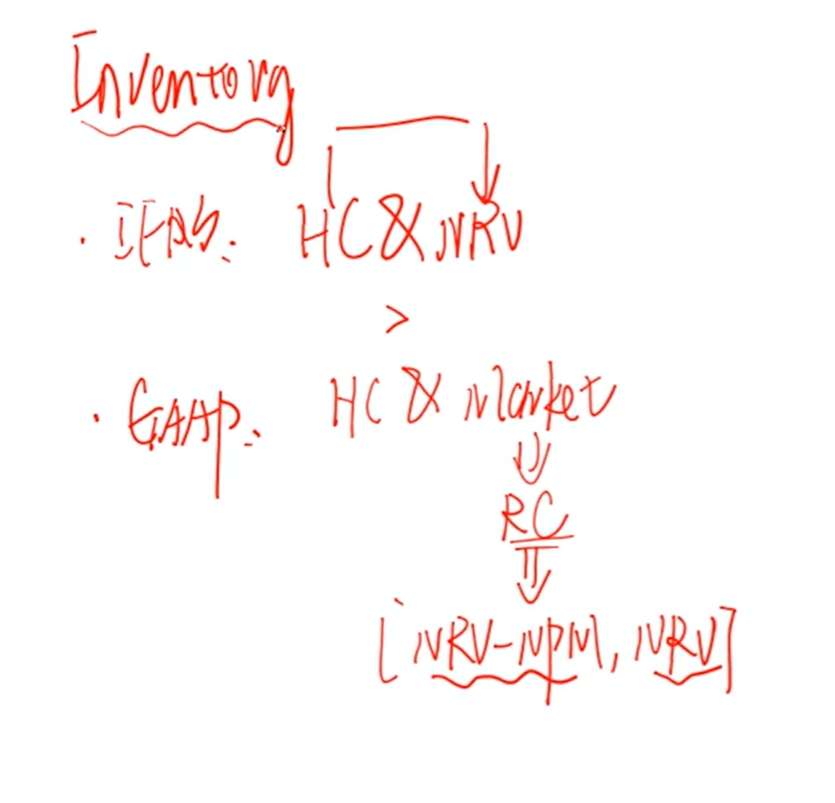 Inventory
· IFRS: HC & NRV
>
· GAAP: HC & Market
RC
[NRV-NPM, NRV]